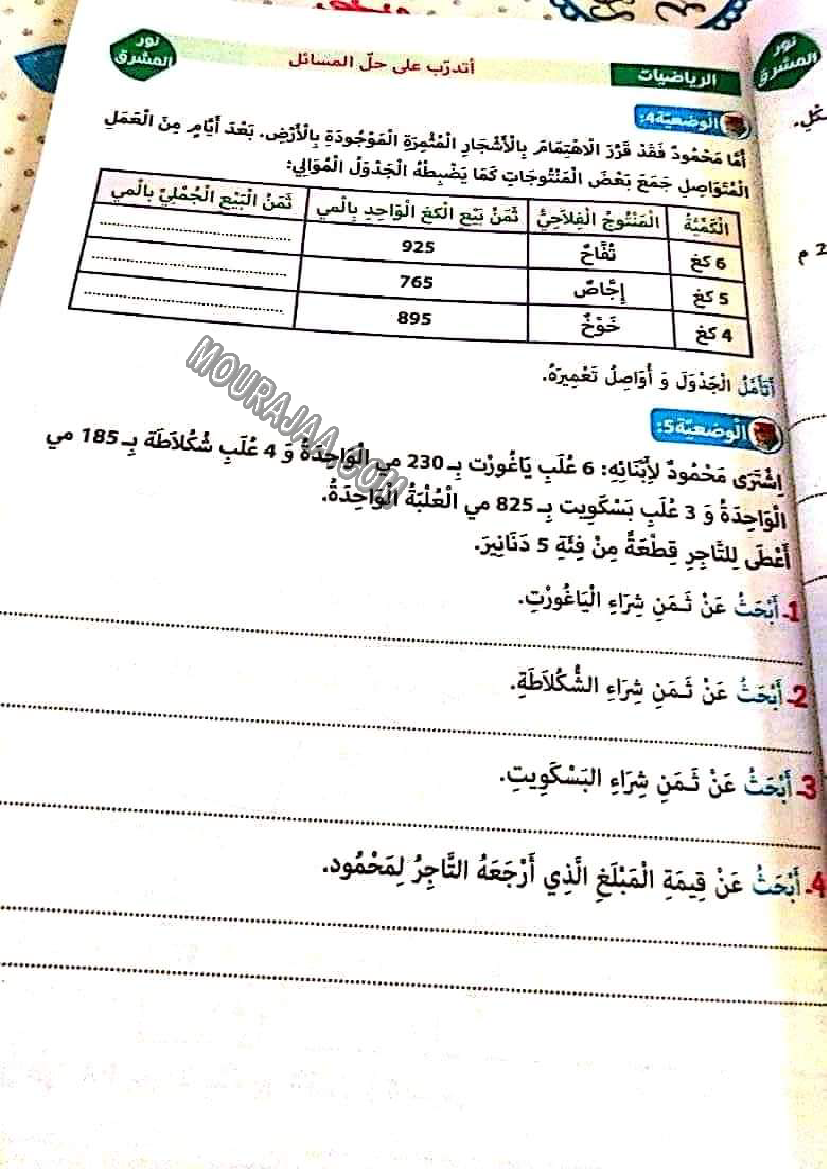 نور المشرق
أتدرّب على حلّ المسائل
الرياضيات
نور المشرق
الوضعيّة 4:
أَمَّا مَحْمُودٌ فَقَدْ قَرَّرَ الْاهْتِمَامَ بِالْأَشْجَارِ الْمُثْمِرَةِ الْمَوْجُودَةِ بِالْأَرْضِ. بَعْدَ أَيَّامٍ مِنَ الْعَمَلِ
الْمُتَوَاصِلِ جَمَعَ بَعْضَ الْمَنْتُوجَاتِ كَمَا يَضْبِطُهُ الْجَدْوَلُ الْمُوَالِي:
الْكَمِّيَّةُ الْمَنْتُوجُ الْفِلَاحِيُّ ثَمَنُ بَيْعِ الْكغ الْوَاحِدِ بِالْمي ثَمَنُ الْبَيْعِ الْجُمْلِيِّ بِالْمي
6 كغ تُفَّاحٌ 925 ........
5 كغ إِجَّاصٌ 765 ........
4 كغ خَوْخٌ 895 ........
أَتَأَمَّلُ الْجَدْوَلَ وَ أُوَاصِلُ تَعْمِيرَهُ.
MOURAJAA.COM
الْوضعيّة 5:
اِشْتَرَى مَحْمُودٌ لِأَبْنَائِهِ: 6 عُلَبِ يَاغُورْت بِـ 230 مي الْوَاحِدَةُ وَ 4 عُلَبِ شُكُلَاطَة بِـ 185 مي
الْوَاحِدَةُ وَ 3 عُلَبِ بَسْكَوِيت بِـ 825 مي الْعُلْبَةُ الْوَاحِدَةُ.
أَعْطَى لِلتَّاجِرِ قِطْعَةً مِنْ فِئَةِ 5 دَنَانِيرَ.
1ـ أَبْحَثُ عَنْ ثَـمَنِ شِرَاءِ الْيَاغُورْتِ.
2ـ أَبْحَثُ عَنْ ثَـمَنِ شِرَاءِ الشُّكُلَاطَةِ.
3ـ أَبْحَثُ عَنْ ثَـمَنِ شِرَاءِ البَسْكَوِيتِ.
4ـ أَبْحَثُ عَنْ قِيمَةِ الْمَبْلَغِ الَّذِي أَرْجَعَهُ التَّاجِرُ لِمَحْمُود.